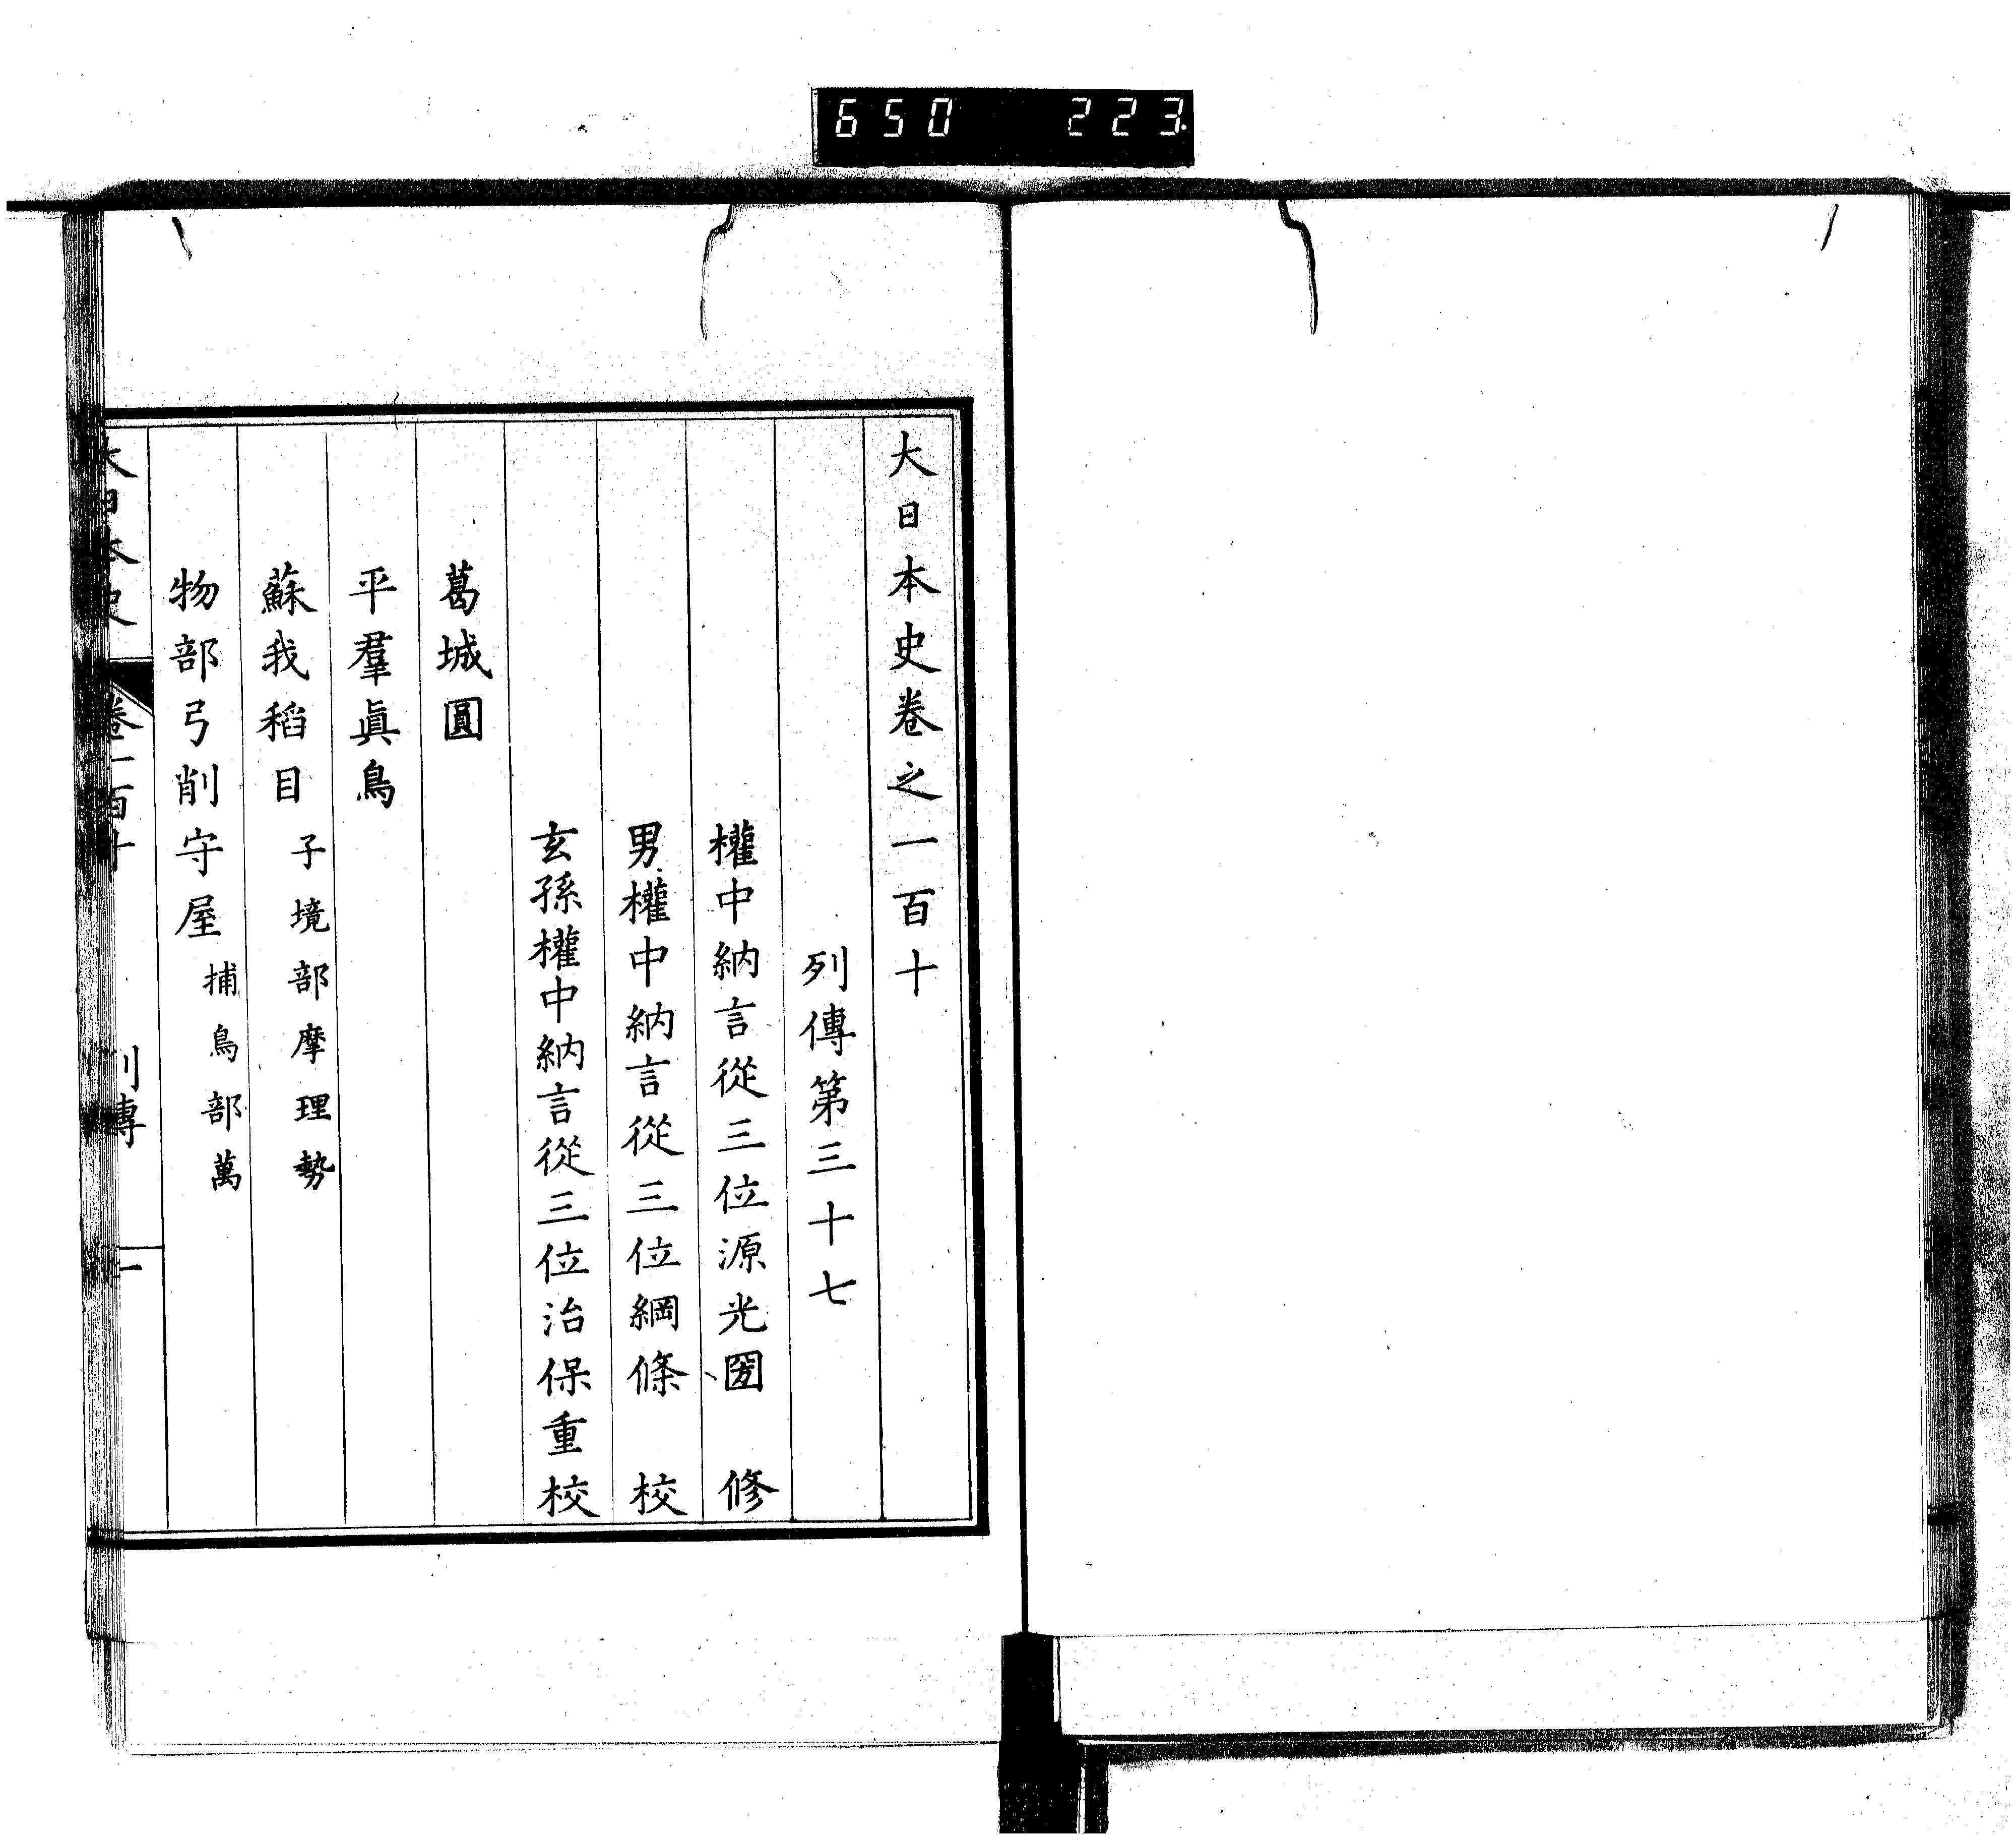 650 223
大日本史卷之一百十
列傳第三十七
權中納言從三位源光圀 修
男權中納言從三位綱條 校
玄孫權中納言從三位治保重校
葛城圓
平羣眞鳥
蘇我稻目 子境部摩理勢
物部弓削守屋 捕鳥部萬
大日本史 卷一百十 列傳 一